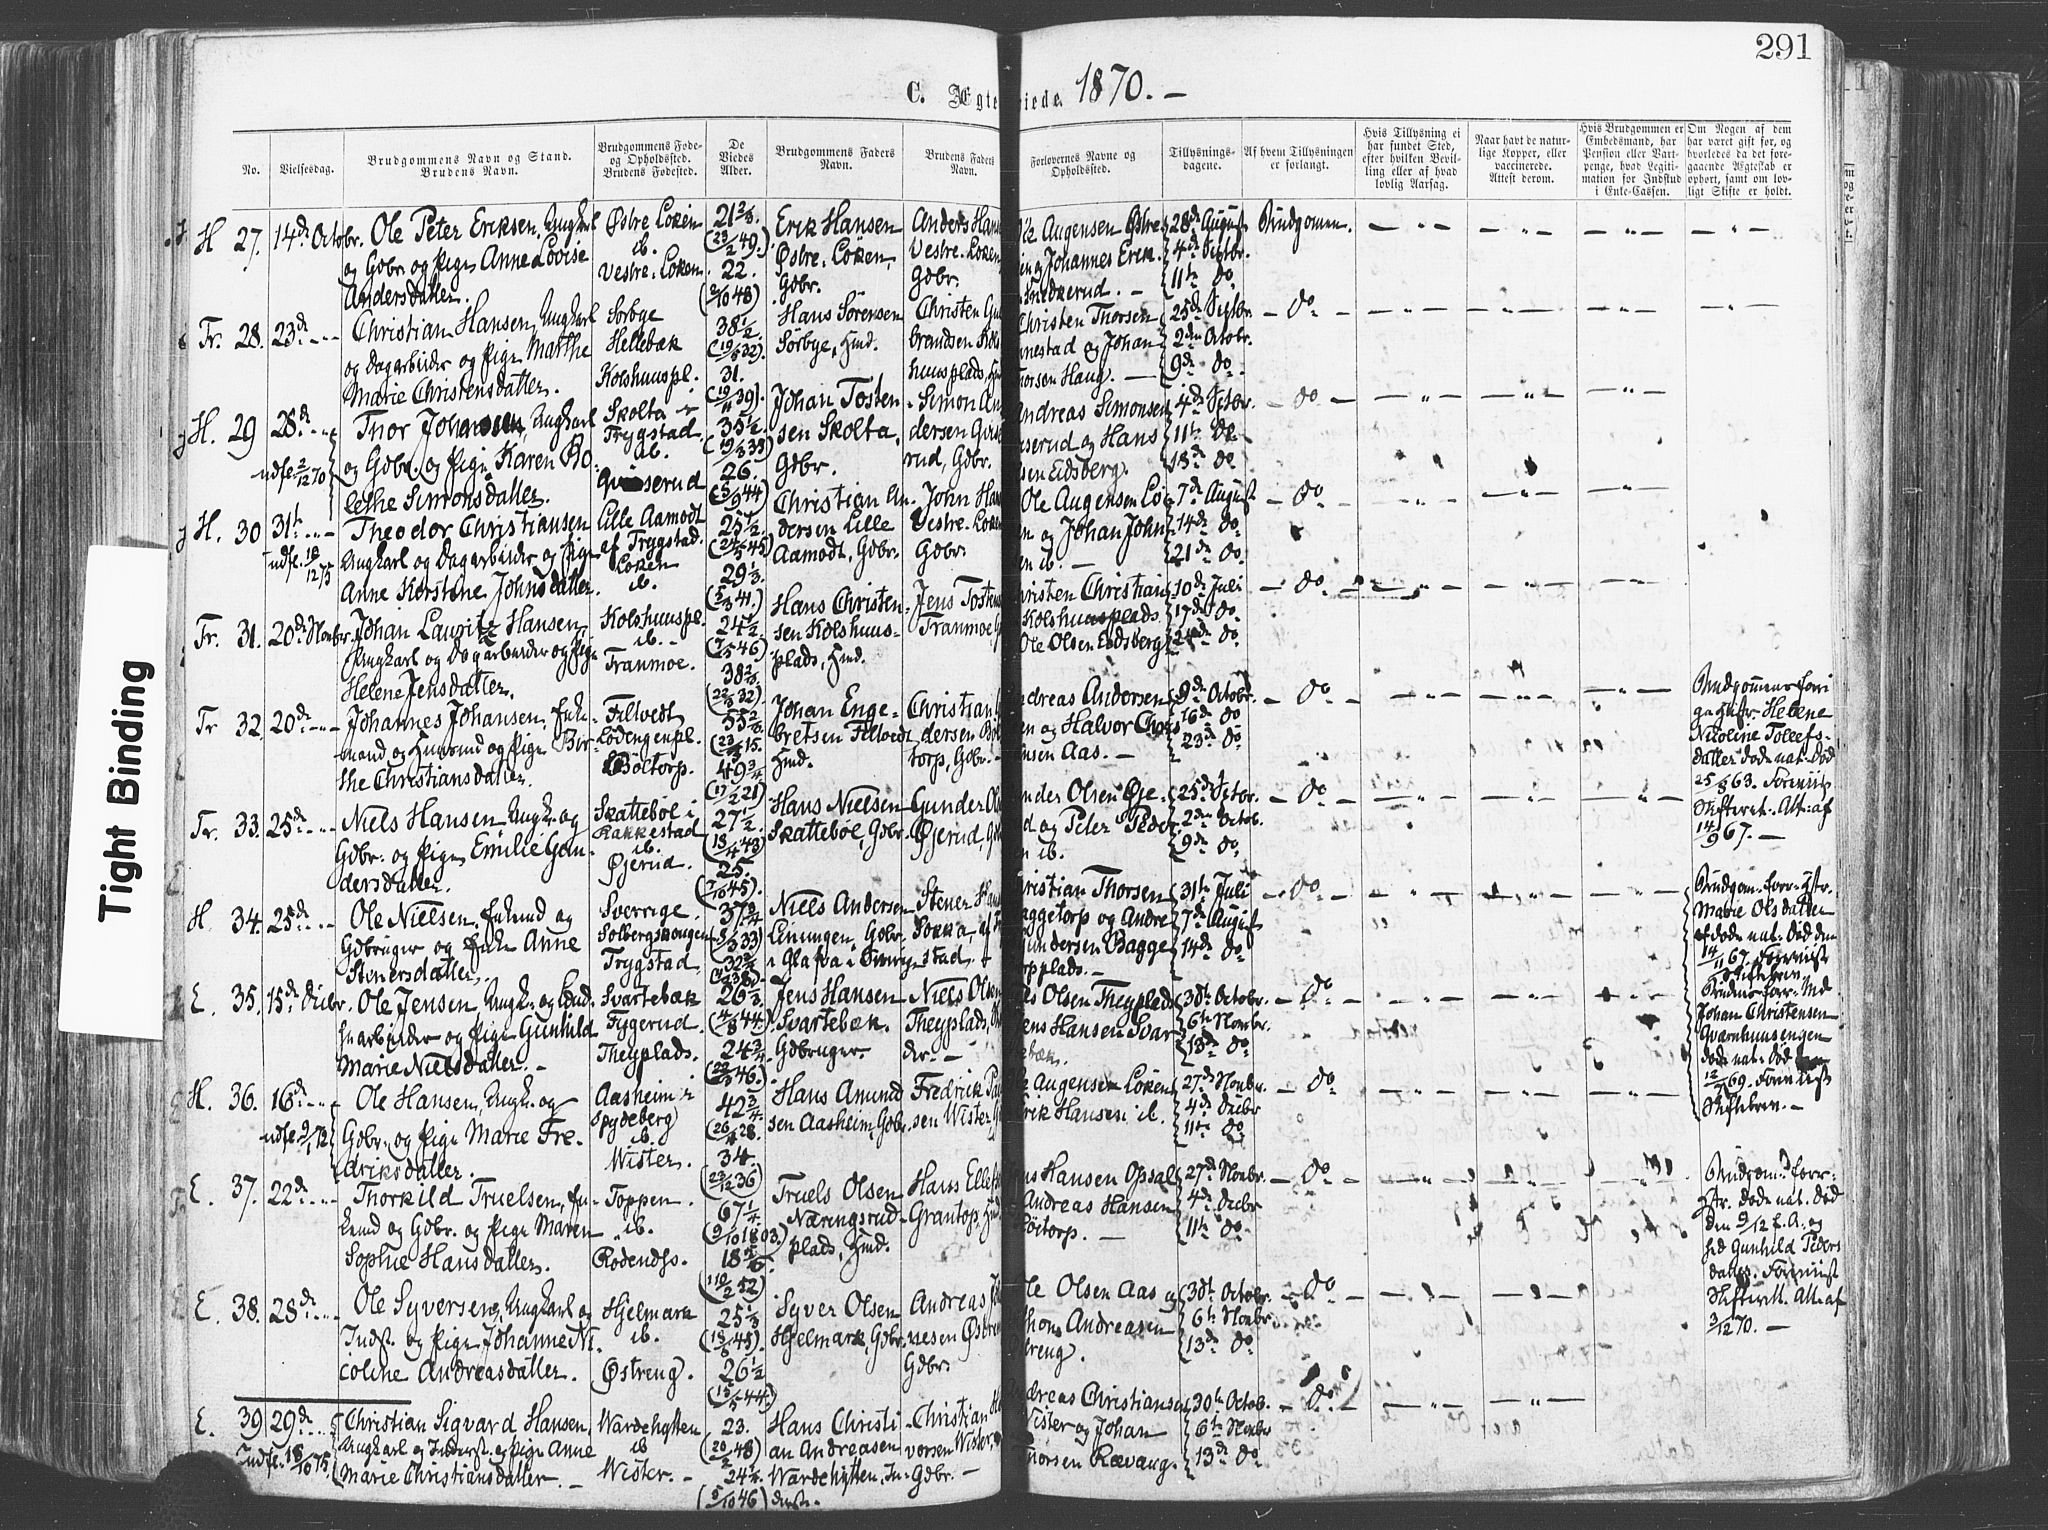 291
C. Ægteviede 1870. —
No.
Vielsesdag.
Brudgommens Navn og Stand.
Brudens Navn.
Brudgommens Føde-
og Opholdssted.
Brudens Fødested.
De
Viedes
Alder.
Brudgommens Faders
Navn.
Brudens Faders
Navn.
Forlovernes Navne og
Opholdssted.
Tillysnings-
dagene.
Af hvem Tillysningen
er forlangt.
Hvis Tillysning ei
har fundet Sted,
efter hvilken Bevil-
ling eller af hvad
lovlig Aarsag.
Naar havt de natur-
lige Kopper, eller
vaccinerede.
Attest derom.
Hvis Brudgommen er
Embedsmand, har
Pension eller Vart-
penge, hvad Legiti-
mation for Indskud
i Enke-Cassen.
Om Nogen af dem
har været gift før, og
hvorledes da det fore-
gaaende Ægteskab er
ophørt, samt om lov-
ligt Skifte er holdt.
Tight Binding
H 27. 14de Octobr. Ole Peter Eriksen, Ungkarl
og Gdbr. og Pige Anne Lovise
Andersdatter.
Østre Løken
ib.
Vestre Løken.
21 2/3.
(23/2 49.)
22.
(2/10 48)
Erik Hansen
Østre Løken,
Gdbr.
Anders Hans
Vestre Løken,
Gdbr.
Augensen Østre
Johannes Erik.
Snedkerud. —
28de August
4de Septbr.
11te do
Brudgommen.
Fr. 28. 23de
Christian Hansen, Ungkarl
og Dagarbeider og Pige Marthe
Marie Christensdatter.
Sørbye
Hellebæk
Kolshuuspl.
38 1/2
(19/5 32).
31.
(19/11 39).
Hans Sørensen
Sørbye, Hmd.
Christen Gul
brandsen Kols
huusplads, Hm
Christen Thorsen
nnestad og Johan
Thorsen Haug. —
25de Septbr
2den Octobr.
9de do.
do
H. 29 28de
udfl. 2/12 70
Thor Johansen, Ungkarl
og Gdbr. og Pige Karen Bo-
lethe Simonsdatter.
Skolta i
Trygstad.
ib.
35 1/2
(19/3 35)
26.
(5/9 44)
Johan Tosten-
sen Skolta,
Gdbr.
Simon An
dersen
rud, Gdbr.
Andreas Simonsen
serud og Hans
sen Eidsberg.
4de Septbr.
11te do
18de do
do
H. 30 31te
Theodor Christiansen
Ungkarl og Dagarbeider og Pige
Anne Kerstine Johnsdatter.
Lille Aamodt
af Trygstad.
Løken
ib.
25 1/2
29 1/3.
(5/3 41.)
Christian An-
dersen Lille
Aamodt, Gdbr.
John Han
Vestre Løken
Gdbr.
Ole Augensen Lø
en og Johan John
en ib. —
7de August
14de do
21de do
do
Fr. 31. 20de Novbr.
Johan Lauritz Hansen,
Ungkarl og Dagarbeider og Pige
Helene Jensdatter.
Kolshuuspl.
ib.
Tranmoe.
24 1/2
(7/5 46)
38 2/3
(22/3 32).
Hans Christen-
sen Kolshuus-
plads, Hmd.
Jens Tosten
Tranmoe,
Christen Christian
Kolshuusplads
Ole Olsen Eidsberg
10de Juli
17de do
24de do
do
Fr 32. 20de
Johannes Johansen, Enke-
mand og Huusmd og Pige Bir-
the Christiansdatter.
Filtvedt
Lødengenpl.
Böltorp.
55 2/3
49 3/4
(17/2 21)
Johan Enge-
bretsen Filtvedt
Hmd.
Christian
dersen Böl
torp, Gdbr.
ndreas Andersen
en og Halvor Chris
ansen Aas. —
9de Octobr
16de do
23de do
do
Brudgommens forri
ge Hustr. Helene
Nicoline Tollefs-
datter døde nat. Død
25/8 63. Forevist
Skifteret. Att. af
14/9 67. —
Fr. 33. 25de
Niels Hansen, Ungk. og
Gdbr. og Pige Emilie Gun-
dersdatter.
Skattebøl i
Rakkestad
ib.
Øjerud.
27 1/2.
(18/4 43)
25.
(7/10 45).
Hans Nielsen
Skattebøl, Gdbr.
Gunder Ols
Øjerud, Gd
nder Olsen Øje-
d og Peter Peder
en ib.
25de Septbr.
2den Octob.
9de do
do
H. 34. 25de
Ole Nielsen, Enkemd og
Gdbruger og Enke Anne
Stenersdatter.
Sverrige.
Solbergskougen
Trygstad
37 3/4
(5/3 33)
Niels Andersen
Lenungen, Gdbr.
i Glafva i Sverg
Stener Han
Sokka, af T
stad.
hristian Thorsen
aggetorp og Andre
undersen Bagge
orpplads. —
31te Juli
7de August
14de do
do
Brudgom. forr. Hstr.
Marie Olsdatter
død nat. Død den
14/11 67. Forevist
Skiftebrev.
Brudens forr. Md
Johan Christensen
Qværnhuusengen
døde nat. Død
12/2 69. Forevist
Skiftebrev. —
E. 35. 15de Decbr.
Ole Jensen, Ungk. og Gaard
marbeider og Pige Gunhild
Marie Nielsdatter. —
Svartebæk
Fygerud.
Theyplads.
26 1/3
(4/8 44.)
24 3/4
(22/3 46.)
Jens Hansen
Svartebæk.
Gdbruger.
Niels Olsen
Theyplads,
der. —
Olsen Theyplads
ens Hansen Svar
bæk.
30te Octobr.
6te Novbr.
13de do
do
H. 36. 16de
Ole Hansen, Ungk. og
Gdbr. og Pige Marie Fre-
driksdatter.
Aasheim i
Spydeberg
ib.
Wister.
42 3/4
34.
(23/12 36)
Hans Amund
sen Aasheim, Gdbr.
Fredrik Pa
sen Wister, G
Augensen Løken
rik Hansen ib.
27de Novbr.
4de Decbr
11te do
do
E. 37. 22de
Thorkild Truelsen, En-
kemd og Gdbr. og Pige Maren
Sophie Hansdatter.
Toppen.
ib.
Rødendfs.
67 1/4
(9/10 1803.)
Truels Olsen
Næringsrud-
plads, Hmd.
Hans Ellefs
Grantop, Hmd
ns Hansen Opsal
Andreas Hansen
Böltorp. —
27de Novbr
4de Decbr
11te do
do
Brudgom. forr.
Hstr. døde nat. Død
den 9/12 f. A. og
hed Gunhild Peders
datter. Forevist
Skifterett. Att. af
3/12 70. —
E. 38. 28de
Ole Syversen, Ungkarl og
Inds. og Pige Johanne Ni-
coline Andreasdatter.
Hjelmark
ib.
Østreng.
25 1/3
26 1/2
(15/5 44.)
Syver Olsen
Hjelmark, Gdbr.
Andreas Joh
nesen Østren
Gdbr.
le Olsen Aas og
hons Andreasen
treng.
30te Octobr.
6te Novbr
13de do
do
E. 39 29de
Indfl. 18/10 75
Christian Sigvard Hansen,
Ungkarl og Inderst. og Pige Anne
Marie Christiansdatter. —
Wardehytten
ib
Wister. —
23.
(20/2 48)
24 1/4
(5/10 46)
Hans Christi-
an Andreasen
Wardehytten, In-
derst.
Christian Ha
vorsen Wister,
Gdbr. —
ndreas Christiansen
Wister og Johan
Thorsen Rævaug.
30te Octob.
6te Novbr
13de do
do